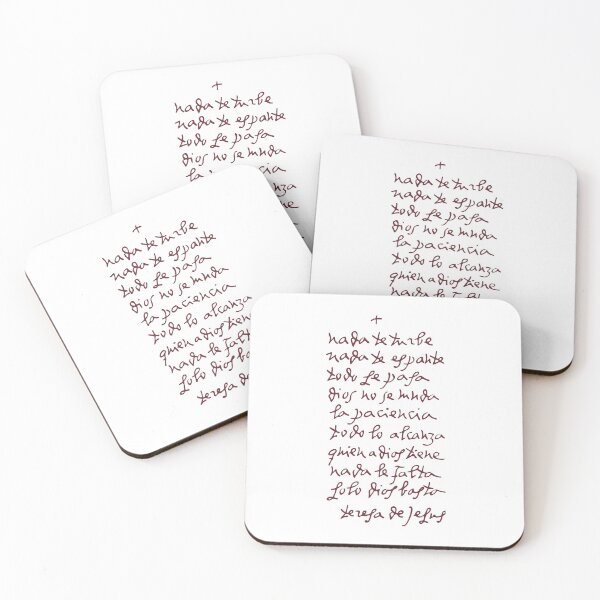 +
nada te turbe
nada te espante
todo se pasa
dios no se muda
la paciencia
alcanza
tiene
+
nada te turbe
nada te espante
todo se pasa
dios no se muda
la paciencia
todo lo alcanza
quien a dios tiene
nada le
+
nada te turbe
nada te espante
todo se pasa
dios no se muda
la paciencia
todo lo alcanza
quien a dios tiene
nada le falta
solo dios
teresa de
+
nada te turbe
nada te espante
todo se pasa
dios no se muda
la paciencia
todo lo alcanza
quien a dios tiene
nada le falta
solo dios basta
teresa de Jesus